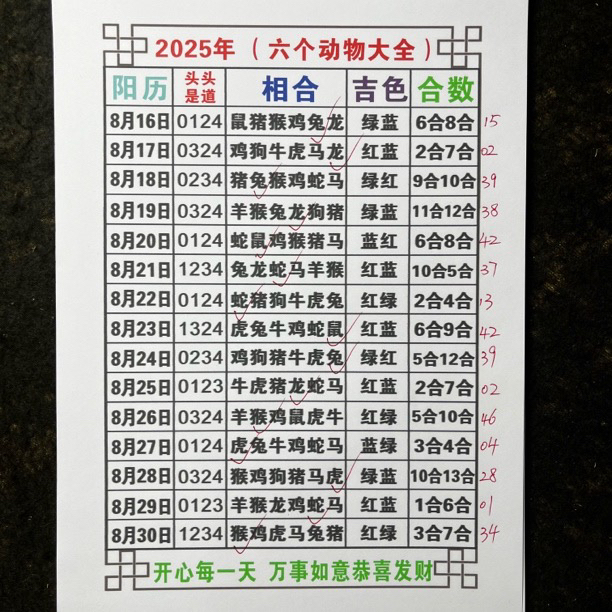 2025年（六个动物大全）
阳历 头头是道 相合 吉色 合数
8月16日 0124 鼠猪猴鸡兔龙 绿蓝 6合8合 15
8月17日 0324 鸡狗牛虎马龙 红蓝 2合7合 02
8月18日 0234 猪兔猴鸡蛇马 绿红 9合10合 39
8月19日 0324 羊猴兔龙狗猪 绿蓝 11合12合 38
8月20日 0124 蛇鼠鸡猴猪马 蓝红 6合8合 42
8月21日 1234 兔龙蛇马羊猴 红蓝 10合5合 37
8月22日 0124 蛇猪狗牛虎兔 红绿 2合4合 13
8月23日 1324 虎兔牛鸡蛇鼠 红蓝 6合9合 42
8月24日 0234 鸡狗猪牛虎兔 绿红 5合12合 39
8月25日 0123 牛虎猪龙蛇马 红蓝 2合7合 02
8月26日 0324 羊猴鸡鼠虎牛 红绿 5合10合 46
8月27日 0124 虎兔牛鸡蛇马 蓝绿 3合4合 04
8月28日 0324 猴鸡狗猪马虎 绿蓝 10合13合 28
8月29日 0123 羊猴龙鸡蛇马 红蓝 1合6合 01
8月30日 1234 猴鸡虎马兔猪 红绿 3合7合 34
开心每一天 万事如意恭喜发财